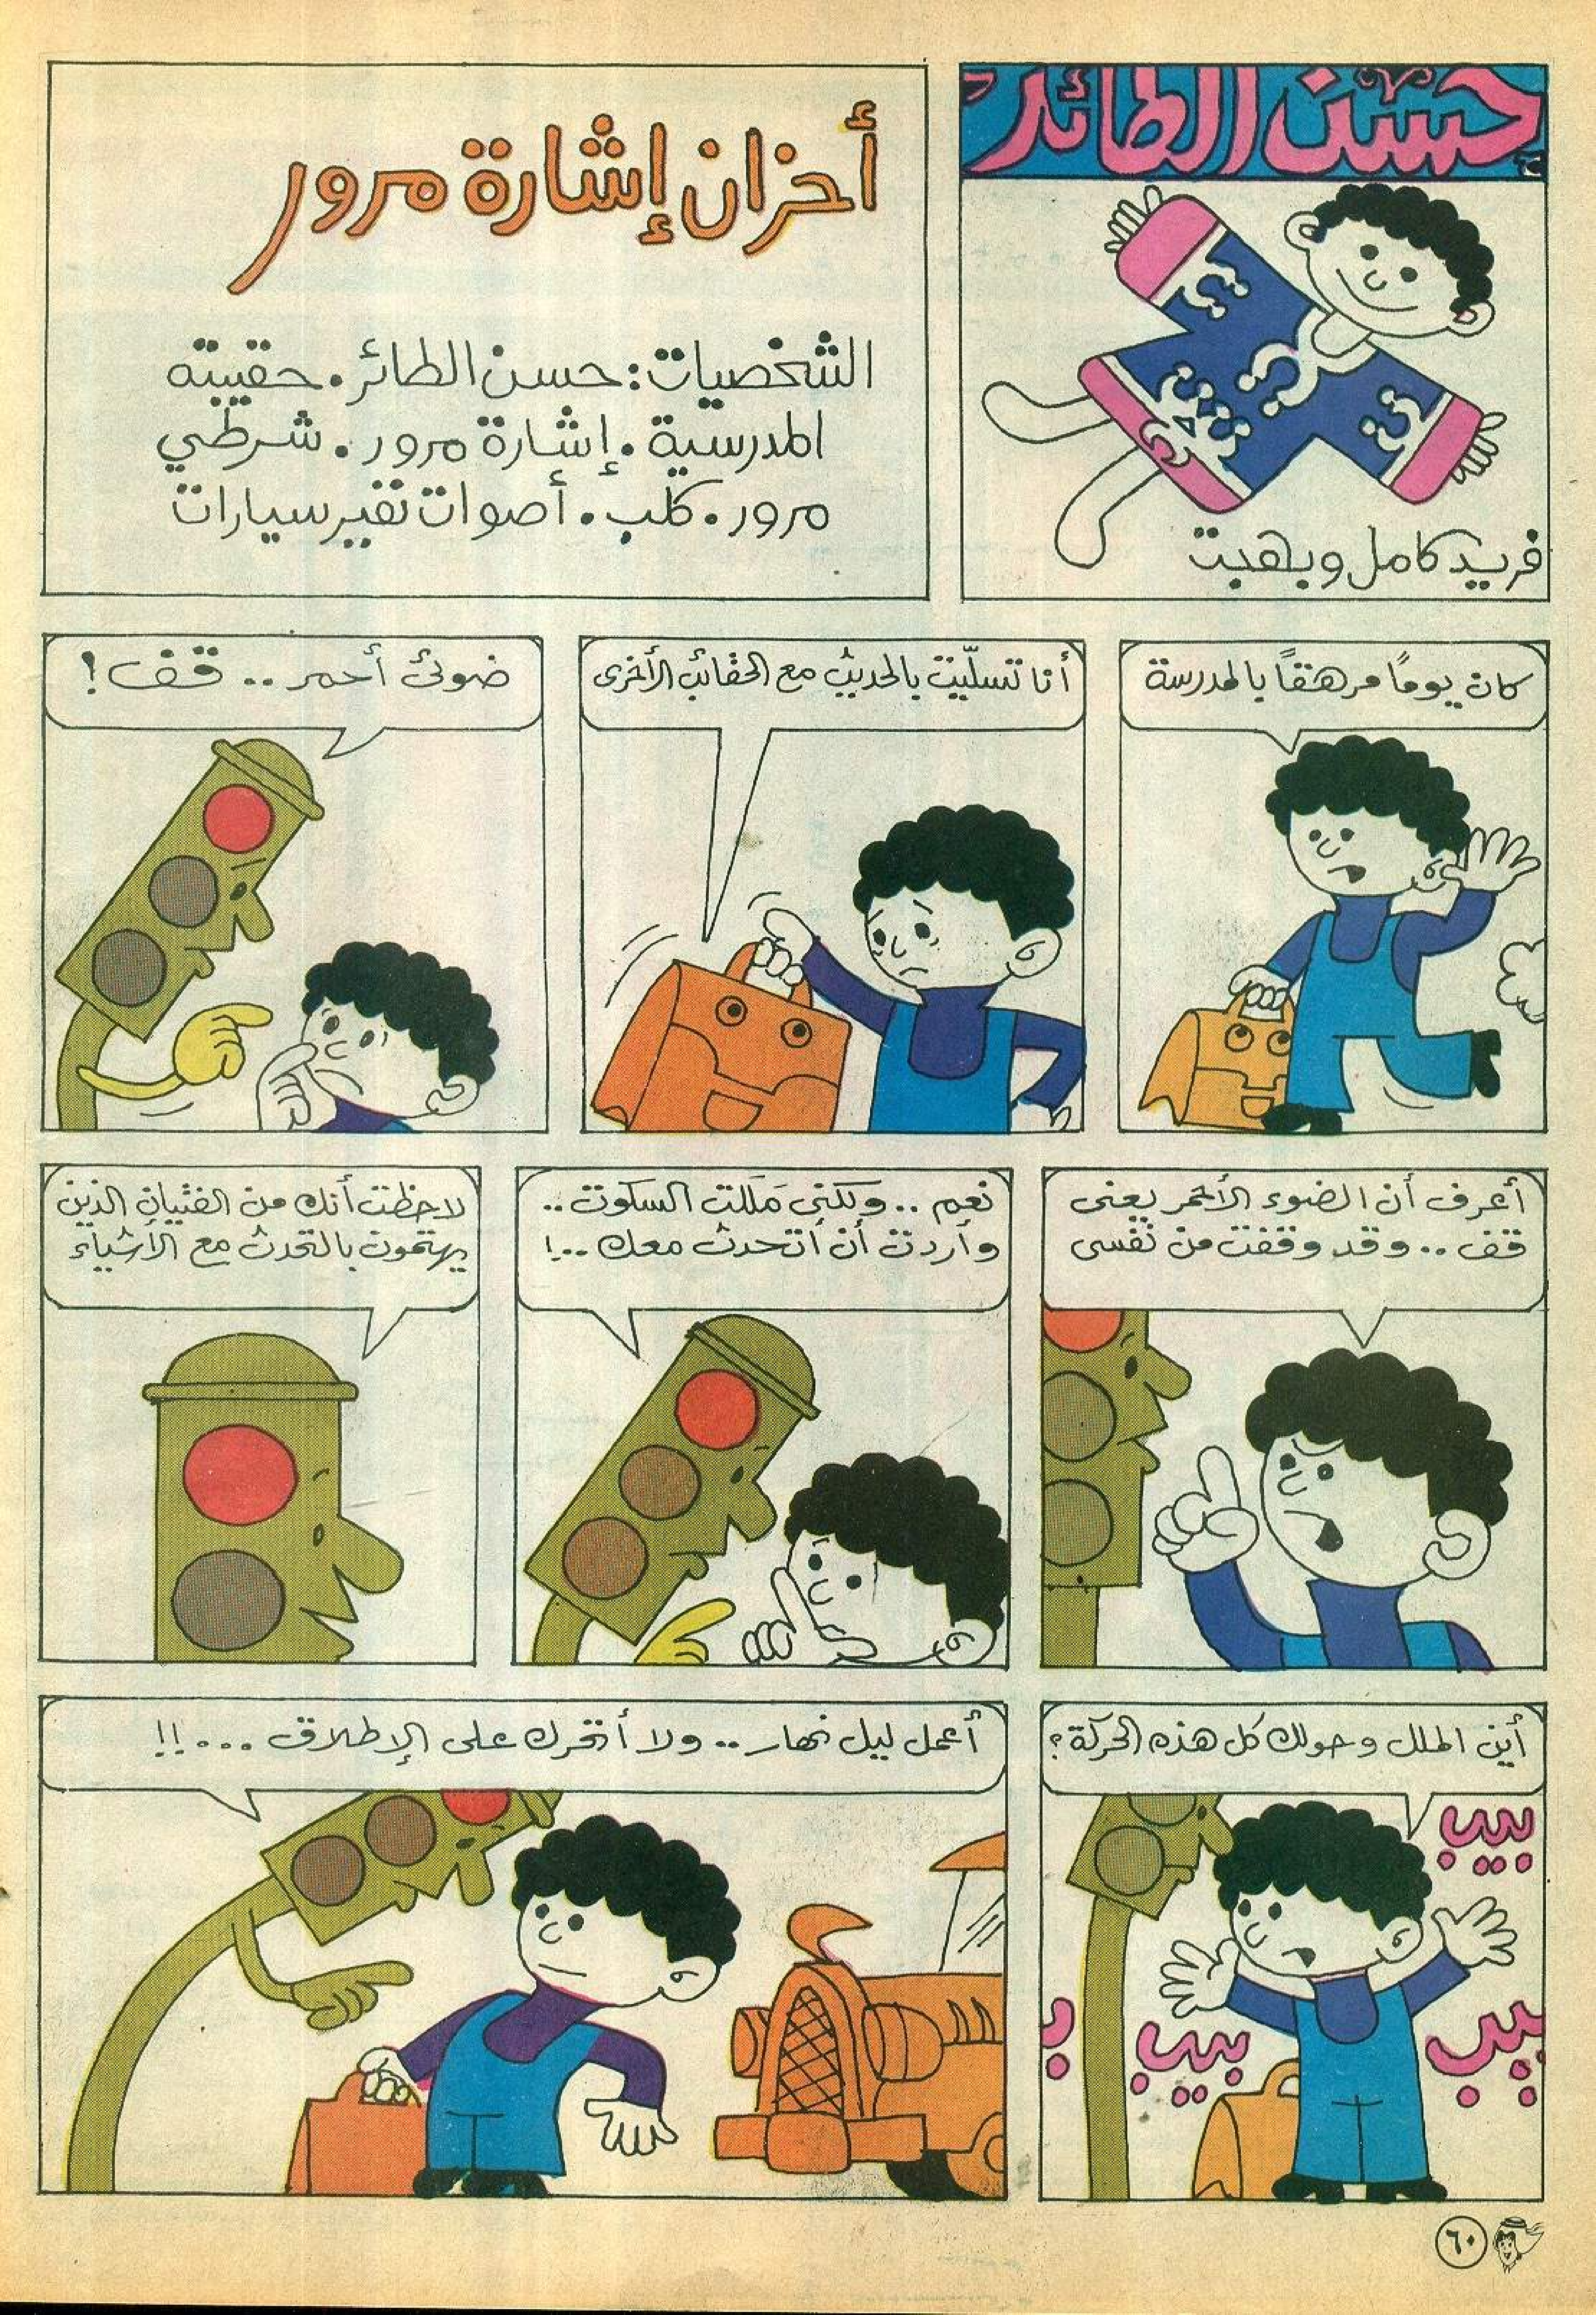 حسن الطائر
فريد كامل وبهجت
أحزان إشارة مرور
الشخصيات: حسن الطائر. حقيبته
المدرسية. إشارة مرور. شرطي
مرور. كلب. أصوات نفير سيارات
كان يومًا مرهقًا بالمدرسة
أنا تسلّيت بالحديث مع الحقائب الأخرى
ضوئى أحمر .. قف!
أعرف أن الضوء الأحمر يعنى
قف .. وقد وقفت من نفسى
نعم .. ولكنى مَلَلت السكوت ..
وأردت أن أتحدث معك ..!
لاحظت أنك من الفتيان الذين
يهتمون بالتحدث مع الأشياء
أين الملل وحولك كل هذه الحركة؟
بيب
بيب
بيب
ب
أعمل ليل نهار .. ولا أتحرك على الإطلاق ...!!
٦٠